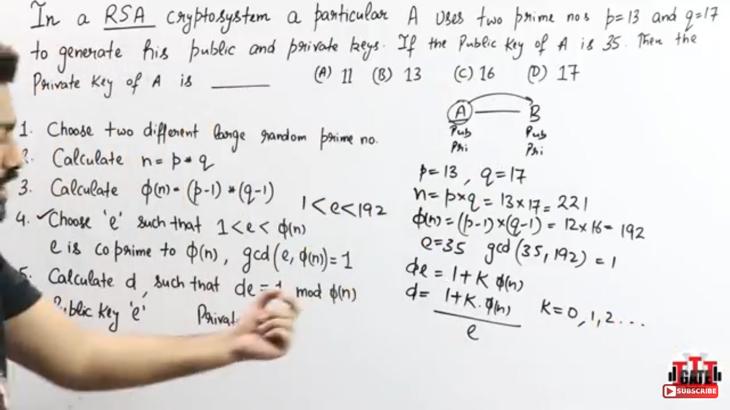 In a RSA cryptosystem a particular A uses two prime nos p=13 and q=17
to generate his public and private keys. If the Public Key of A is 35. Then the
Private Key of A is ______ (A) 11 (B) 13 (C) 16 (D) 17
1. Choose two different large random prime no.
2. Calculate n= p * q
3. Calculate φ(n) = (p-1) * (q-1)
1<e<192
4. ✓Choose 'e' such that 1<e<φ(n)
e is coprime to φ(n), gcd(e, φ(n))=1
5. Calculate d, such that de = 1 mod φ(n)
Public Key 'e'
A B
Pub Pub
Pri Pri
p=13, q=17
n=p×q = 13×17= 221
φ(n)=(p-1)×(q-1)= 12×16= 192
e=35 gcd(35,192)=1
de = 1+K φ(n)
d= 1+K.φ(n)
K=0,1,2...
e
GATE
SUBSCRIBE